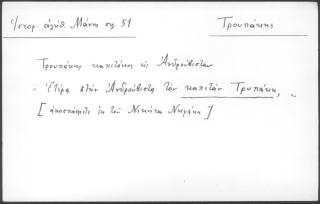 Ἱστορ. ἀλήθ. Μάνης σελ. 51
Τρουπάκης
Τρουπάκης καπετάνιος τῆς Ἀνδρούβιστας
"Στέρα στὴν Ἀνδρούβιστα τὸν καπετὰν Τρουπάκη, "
[ἀποσπάσματα ἐκ τοῦ Νικήτα Νηφάκη]